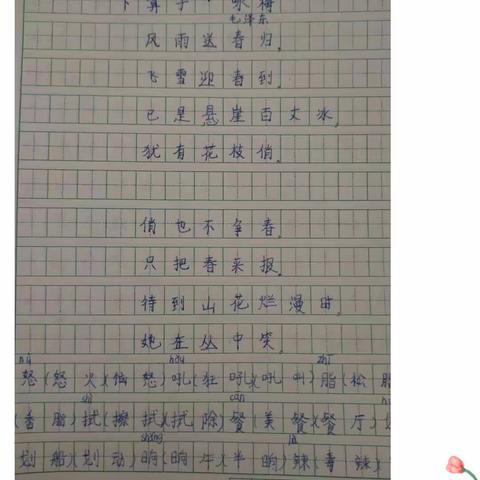 卜算子·咏梅
毛泽东
风雨送春归。
飞雪迎春到。
已是悬崖百丈冰。
犹有花枝俏。
俏也不争春。
只把春来报。
待到山花烂漫时。
她在丛中笑。
nù hǒu zhī
怒(怒火)(恼怒)吼(狂吼)(吼叫)脂(松脂
shì cān
(香脂)拭(擦拭)(拭除)餐(美餐)(餐厅)
shǎng là
划船)(划动)晌(晌午)(半晌)辣(毒辣)